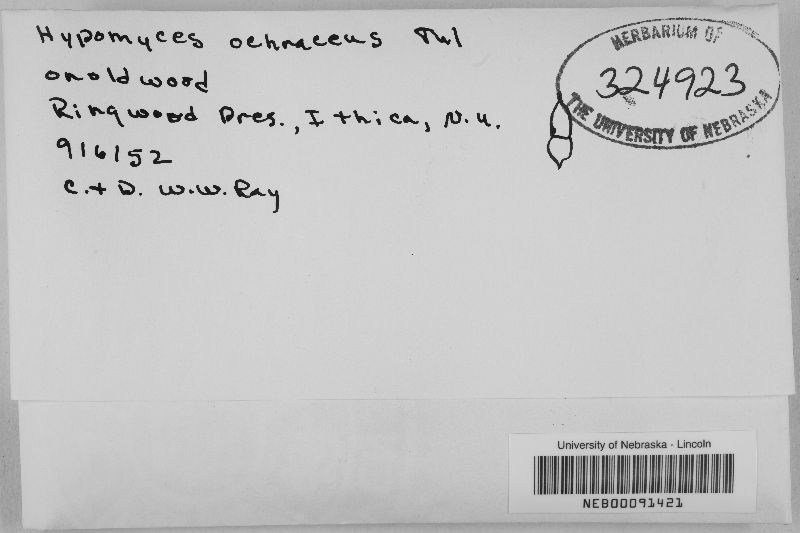 Hypomyces ochraceus Tul
on old wood
Ringwood Pres., Ithica, N.Y.
9/6/52
C. + D. W.W. Ray
HERBARIUM OF
324923
THE UNIVERSITY OF NEBRASKA
University of Nebraska - Lincoln
NEB00091421